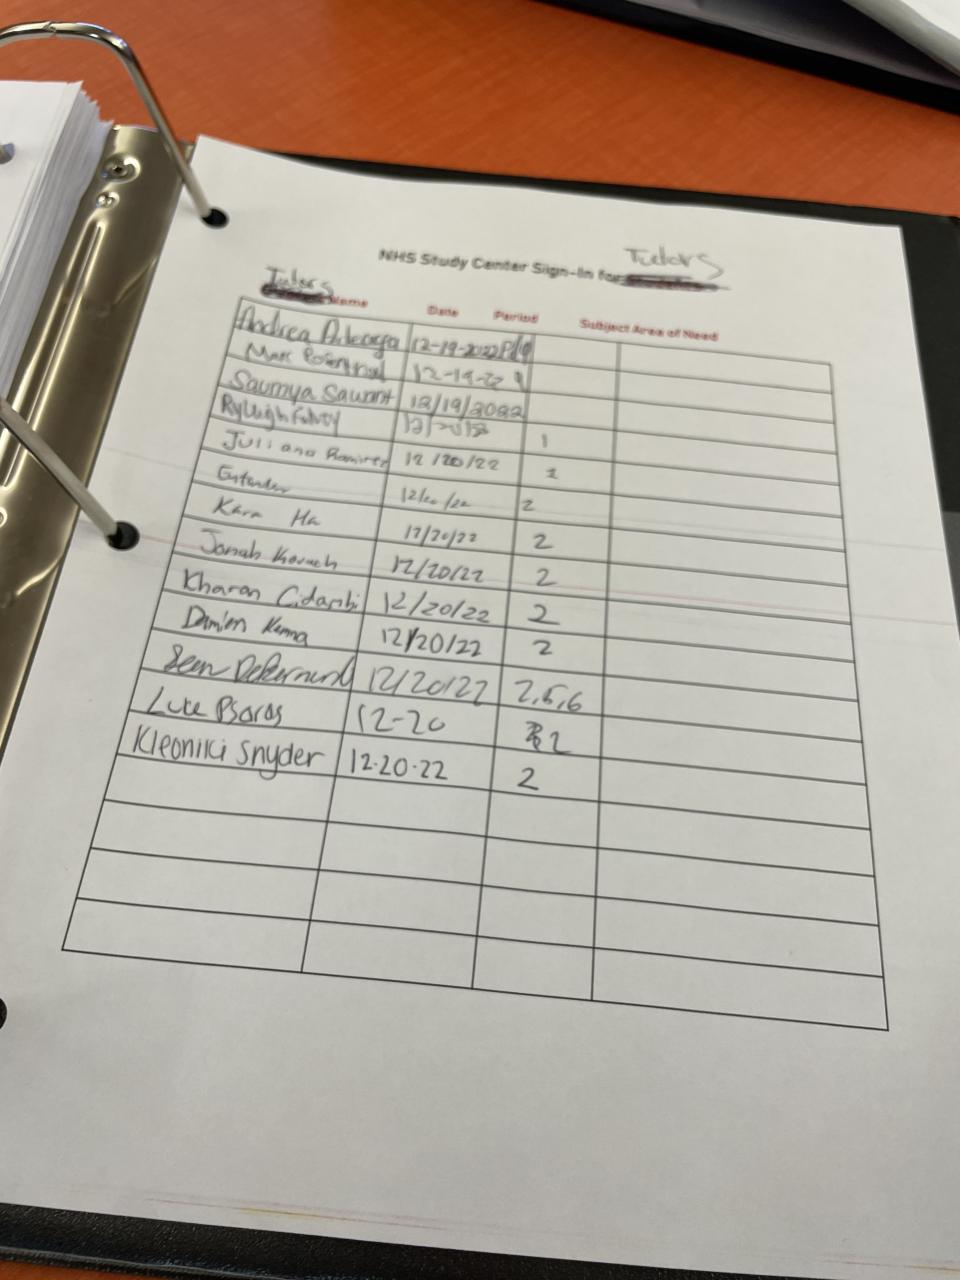 NHS Study Center Sign-In for Tutors
Tutors Name Date Period Subject Area of Need
Andrea 12-19-2022
Marc 12-19-22
Saumya Sawant 12/19/2022
Ryleigh 1
Juliana Ramirez 12/20/22 1
2
Kara Ha 12/20/22 2
Jonah 12/20/22 2
Kharan Cidambi 12/20/22 2
Damien Kenna 12/20/22 2
12/20/22 2,5,6
Luke Psaros 12-20 2
Kleoniki Snyder 12-20-22 2